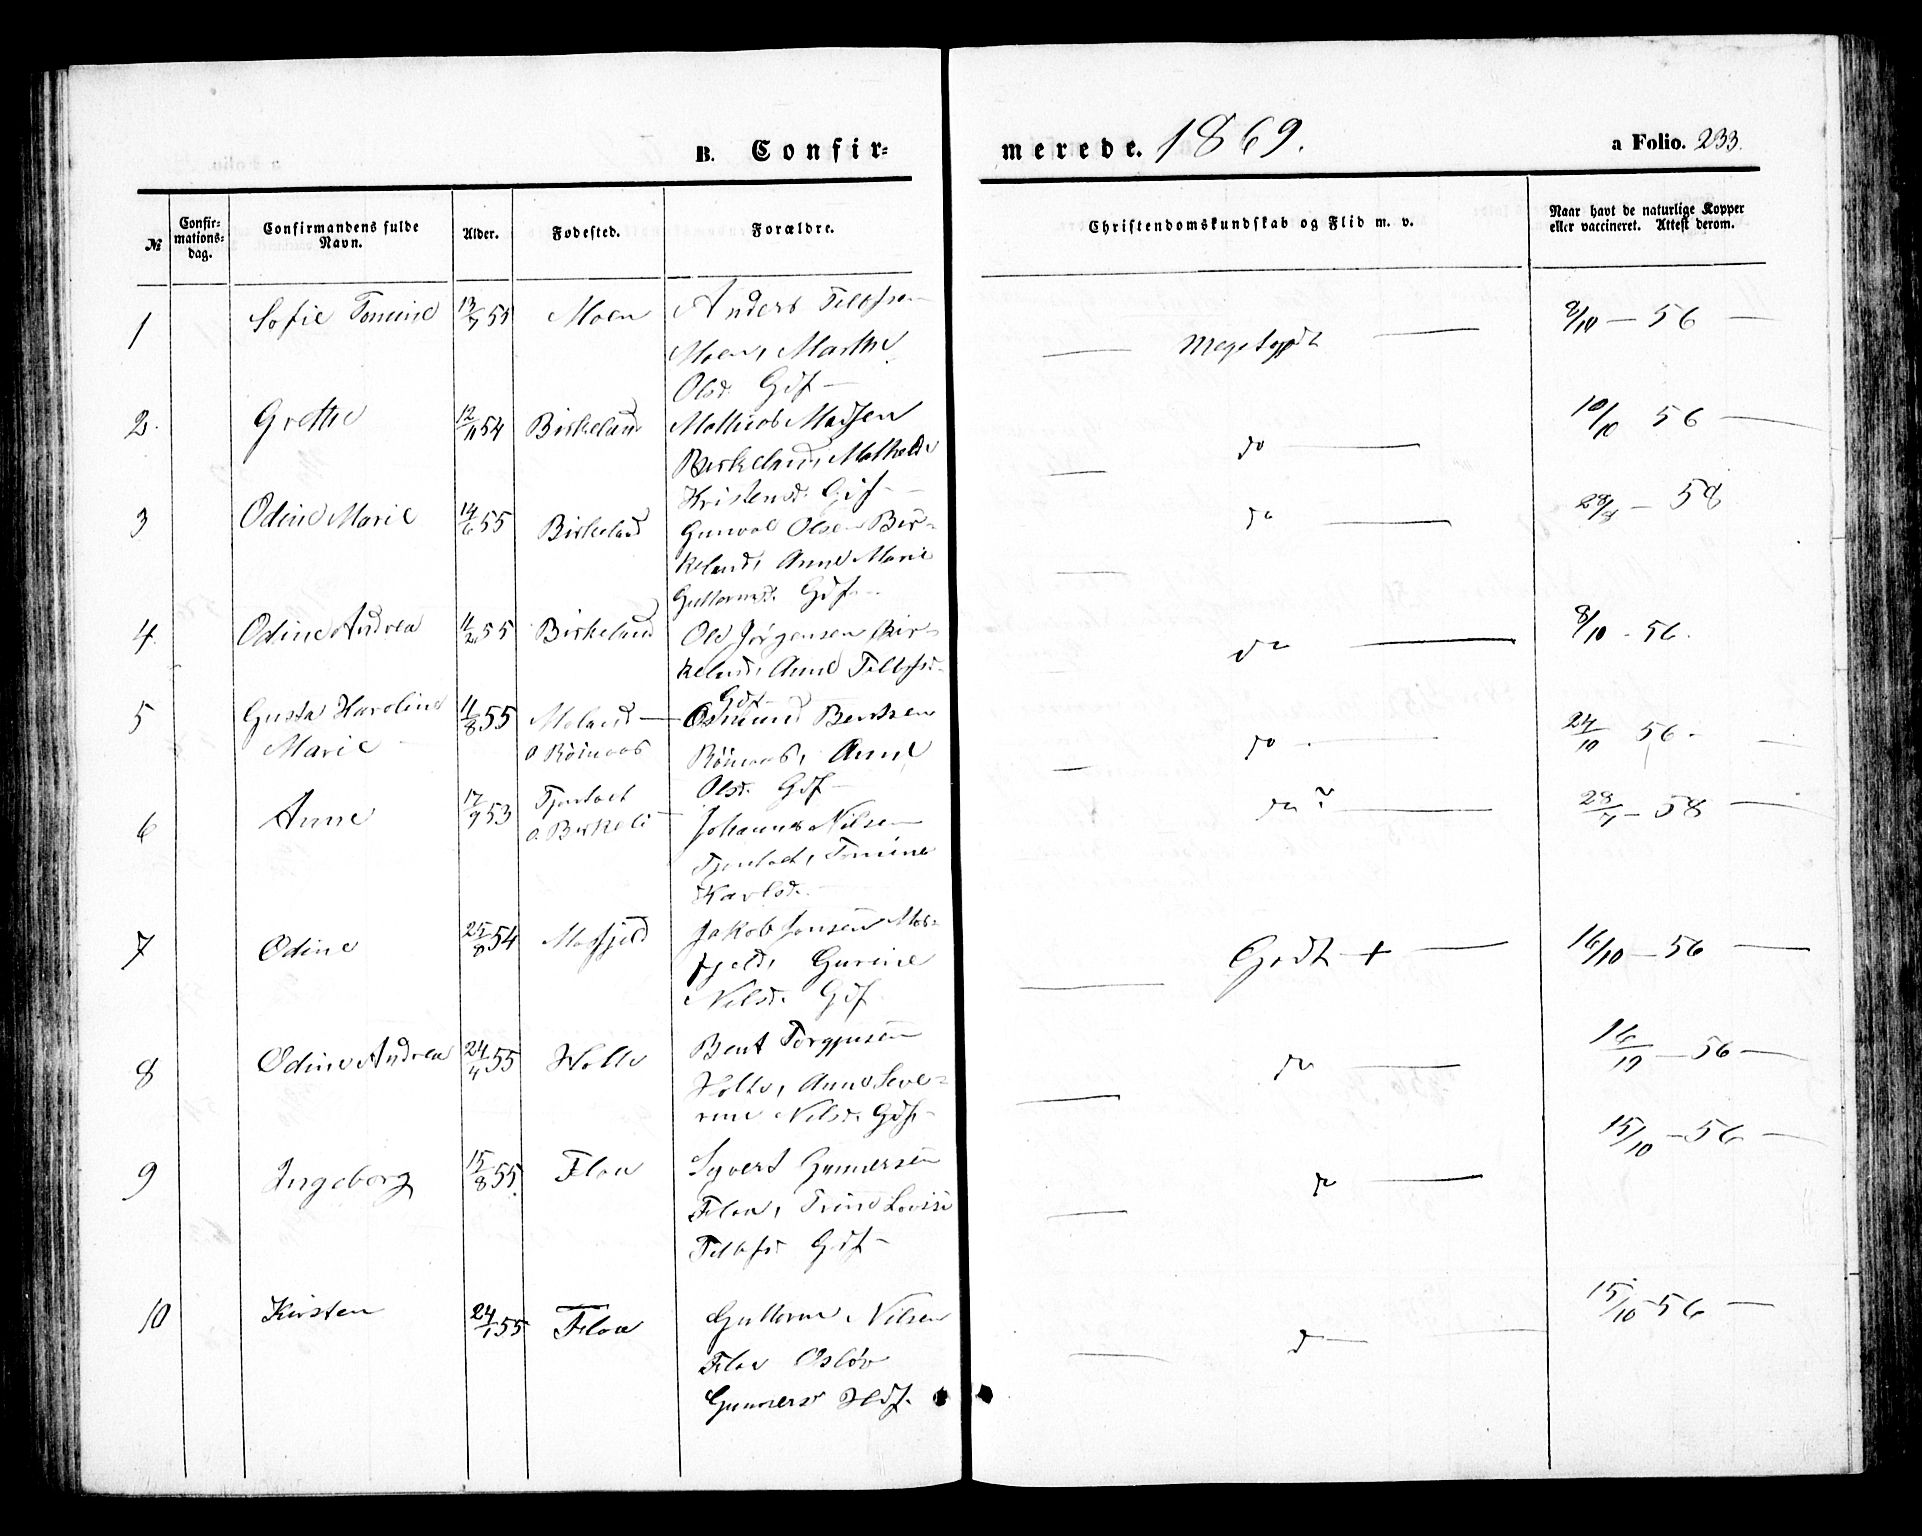 B. Confir-
merede. 1869.
a Folio. 233.
№
Confir-
mations-
dag.
Confirmandens fulde
Navn.
Alder.
Fødested.
Forældre.
Christendomskundskab og Flid m. v.
Naar havt de naturlige Kopper
eller vaccineret. Attest derom.
1 Sofie Tomine 13/7 55 Moen Anders Tellefsen
Moen, Marthe
Olsd. Gdf —
Meget godt — 8/10 — 56 —
2. Grethe 12/11 54 Birkeland Mathias Madsen
Birkeland, Mathilde
Kristensd. Gdf —
do — 10/10 56 —
3 Odine Marie 14/6 55 Birkeland Gunval Olsen Bir-
keland, Anne Marie
Guttormsd. Gdf —
do — 28/8 — 58
4. Odine Andrea 11/2 55 Birkeland Ole Jörgensen Bir-
keland, Anne Tellefsd.
Gdf —
do — 8/10 - 56.
5 Gusta Karoline 11/8 55 Moland — Osmund Bentsen
Marie — o Röinaas Röinaas, Anne
Olsd. Gdf —
do — 24/10 56 -
6 Anne 17/9 53
Johannes Nilsen
Tomine
Karlsd.
do — 28/7 — 58 —
7 Odine 25/8 54 Masfjeld Jakob Jonsen Mas-
fjeld, Gurine
Nilsd. Gdf
Godt + — 16/10 — 56 —
8 Odine Andrea 24/4 55 Holte Bent Torgjusen
Holte, Anne Seve-
rine Nilsd. Gdf —
do — 16/10 — 56 —
9 Ingeborg 15/8 55. Floa Syvert Gunnersen
Floa, Trine Lovise
Tellefsd Gdf —
do — 15/10 — 56 —
10 Kirsten 24/1 55 Floa Guttorm Nilsen
Floa Osløv
Gunnersd Hdf.
d — 15/10 56 —